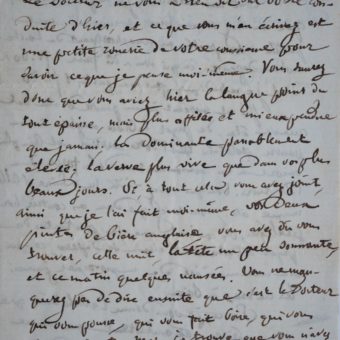 Le Docteur ne vous a rien dit
duite d'hier, et ce que vous m'en écrivez est
une petite rouerie de votre conscience pour
savoir ce que je pense moi-même. Vous saurez
donc que vous aviez hier la langue point du
tout épaisse, mais plus affilée et mieux pendue
que jamais. La dominante passablement
élevée. La verve plus vive que dans vos plus
beaux jours. Si à tout cela, vous avez joint,
ainsi que je l'ai fait moi-même, vos deux
pintes de bière anglaise, vous avez dû vous
trouver, cette nuit, la tête un peu sonnante,
et ce matin quelques nausées. Vous ne man-
querez pas de dire ensuite que c'est le Docteur
qui vous pousse, qui vous fait boire, qui vous
je trouve que vous n'avez